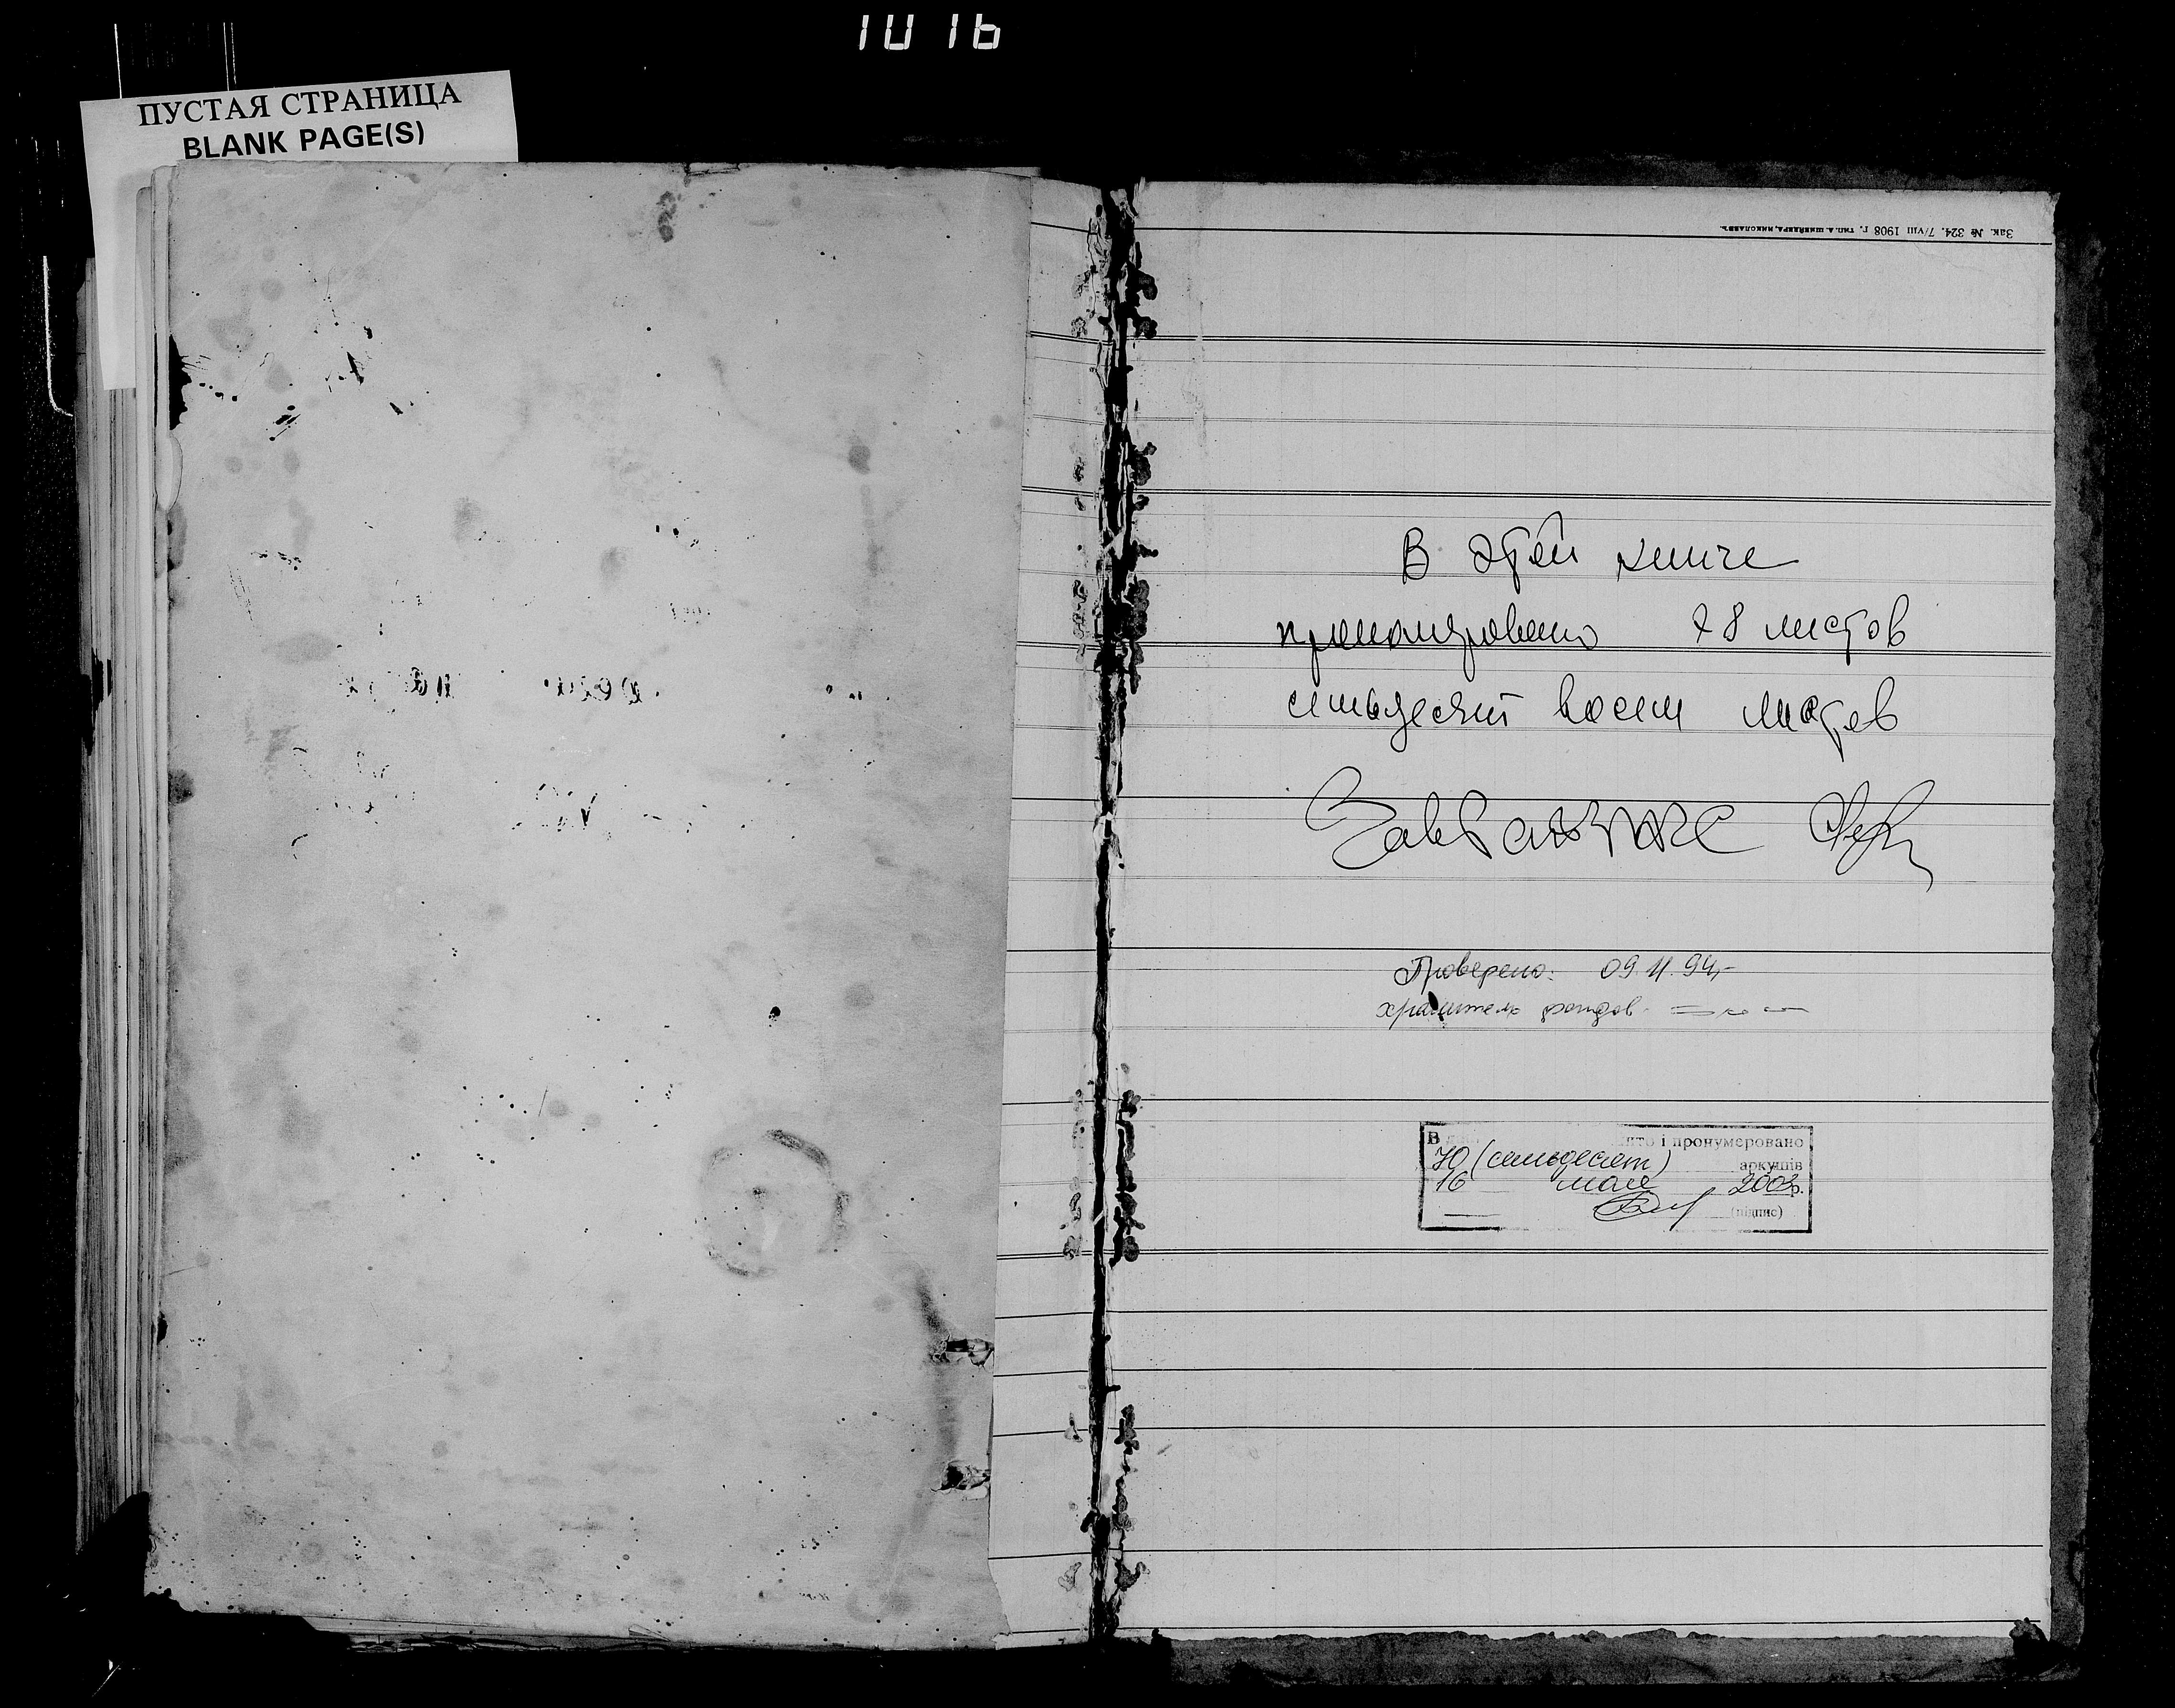 1016
ПУСТАЯ СТРАНИЦА
BLANK PAGE(S)
Зак. № 324. 7/VIII 1908 г. тип. А. Шнейдера, Николаевъ.
В этой книге
пронумеровано 78 листов
семьдесят восем листов
Завгахзагс
Проверено: 09.11.94,-
хранитель фондов
В ято і пронумеровано
70 (семьдесят) аркушів
16 мая 2003р.
(підпис)